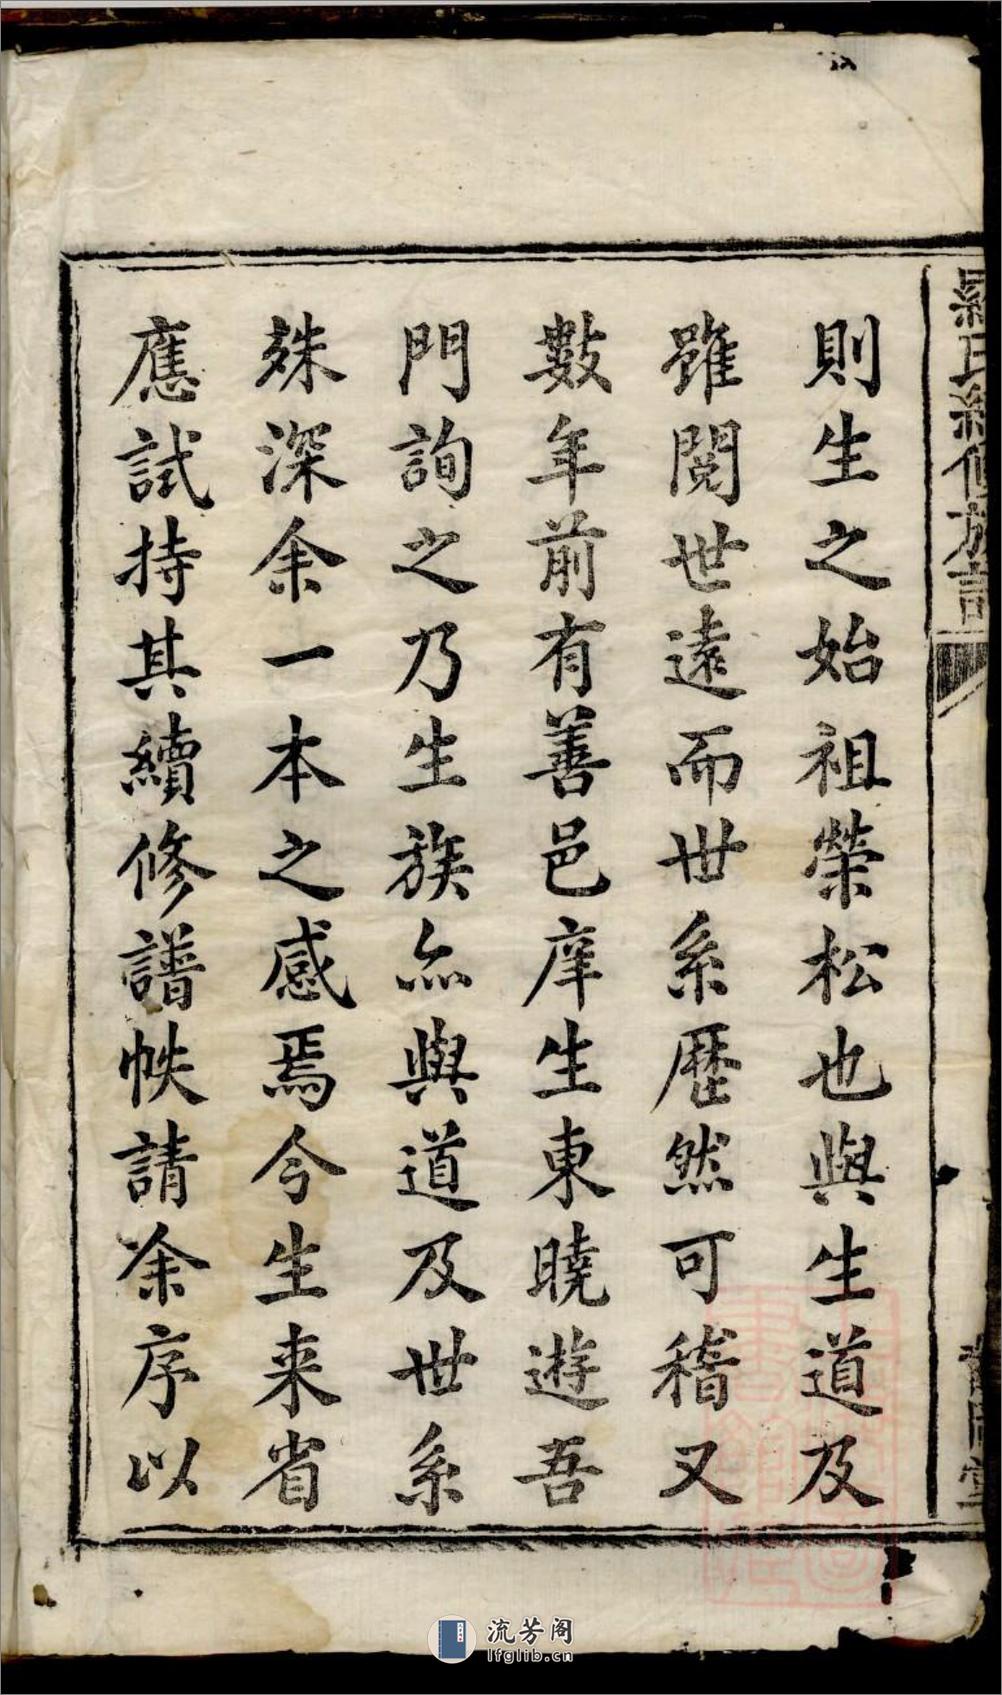 羅氏續修族譜
則生之始祖榮松也與生道及
雖閱世遠而世系歷然可稽又
數年前有善邑庠生東曉遊吾
門詢之乃生族亦與道及世系
殊深余一本之感焉今生来省
應試持其續修譜帙請余序以
流芳阁
lfglib.cn